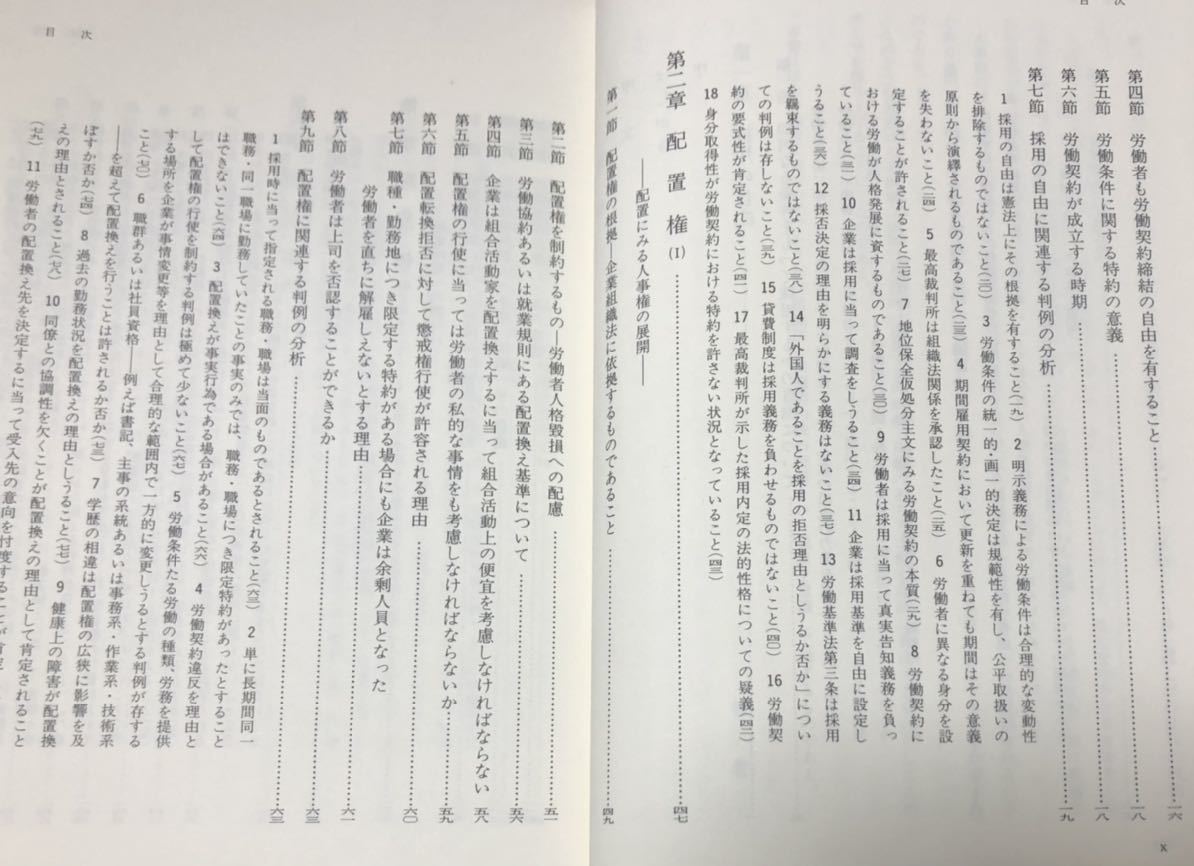 目次
第四節　労働者も労働契約締結の自由を有すること……一六
第五節　労働条件に関する特約の意義……一八
第六節　労働契約が成立する時期……一八
第七節　採用の自由に関連する判例の分析……一九
1　採用の自由は憲法上にその根拠を有すること(一九)　2　明示義務による労働条件は合理的な変動性
を排除するものではないこと(二〇)　3　労働条件の統一的・画一的決定は規範性を有し、公平取扱いの
原則から演繹されるものであること(二三)　4　期間雇用契約において更新を重ねても期間はその意義
を失わないこと(二四)　5　最高裁判所は組織法関係を承認したこと(二五)　6　労働者に異なる身分を設
定することが許されること(二七)　7　地位保全仮処分主文にみる労働契約の本質(二九)　8　労働契約に
おける労働が人格発展に資するものであること(三〇)　9　労働者は採用に当って真実告知義務を負っ
ていること(三一)　10　企業は採用に当って調査をしうること(三四)　11　企業は採用基準を自由に設定し
うること(三六)　12　採否決定の理由を明らかにする義務はないこと(三七)　13　労働基準法第三条は採用
を羈束するものではないこと(三八)　14　「外国人であることを採用の拒否理由としうるか否か」につい
ての判例は存しないこと(三九)　15　貸費制度は採用義務を負わせるものではないこと(四〇)　16　労働契
約の要式性が肯定されること(四一)　17　最高裁判所が示した採用内定の法的性格についての疑義(四二)
18　身分取得性が労働契約における特約を許さない状況となっていること(四三)
第二章　配置権(I)……四七
――配置にみる人事権の展開――
第一節　配置権の根拠―企業組織法に依拠するものであること……四九
x
目次
第二節　配置権を制約するもの―労働者人格毀損への配慮……五一
第三節　労働協約あるいは就業規則にある配置換え基準について……五六
第四節　企業は組合活動家を配置換えするに当って組合活動上の便宜を考慮しなければならない……五八
第五節　配置権の行使に当っては労働者の私的な事情をも考慮しなければならないか……五九
第六節　配置転換拒否に対して懲戒権行使が許容される理由……六〇
第七節　職種・勤務地につき限定する特約がある場合にも企業は余剰人員となった
労働者を直ちに解雇しえないとする理由……六一
第八節　労働者は上司を否認することができるか……六三
第九節　配置権に関連する判例の分析……六三
1　採用時に当って指定される職務・職場は当面のものであるとされること(六三)　2　単に長期間同一
職務・同一職場に勤務していたことの事実のみでは、職務・職場につき限定特約があったとすること
はできないこと(六四)　3　配置換えが事実行為である場合があること(六六)　4　労働契約違反を理由と
して配置権の行使を制約する判例は極めて少ないこと(六七)　5　労働条件たる労働の種類、労務を提供
する場所を企業が事情変更等を理由として合理的な範囲内で一方的に変更しうるとする判例が存する
こと(七〇)　6　職群あるいは社員資格――例えば書記、主事の系統あるいは事務系・作業系・技術系
――を超えて配置換えを行うことは許されるか否か(七三)　7　学歴の相違は配置権の広狭に影響を及
ぼすか否か(七四)　8　過去の勤務状況を配置換えの理由としうること(七七)　9　健康上の障害が配置換
えの理由とされること(七八)　10　同僚との協調性を欠くことが配置換えの理由として肯定されること
(七九)　11　労働者の配置換え先を決定するに当って受入先の意向を忖度することが